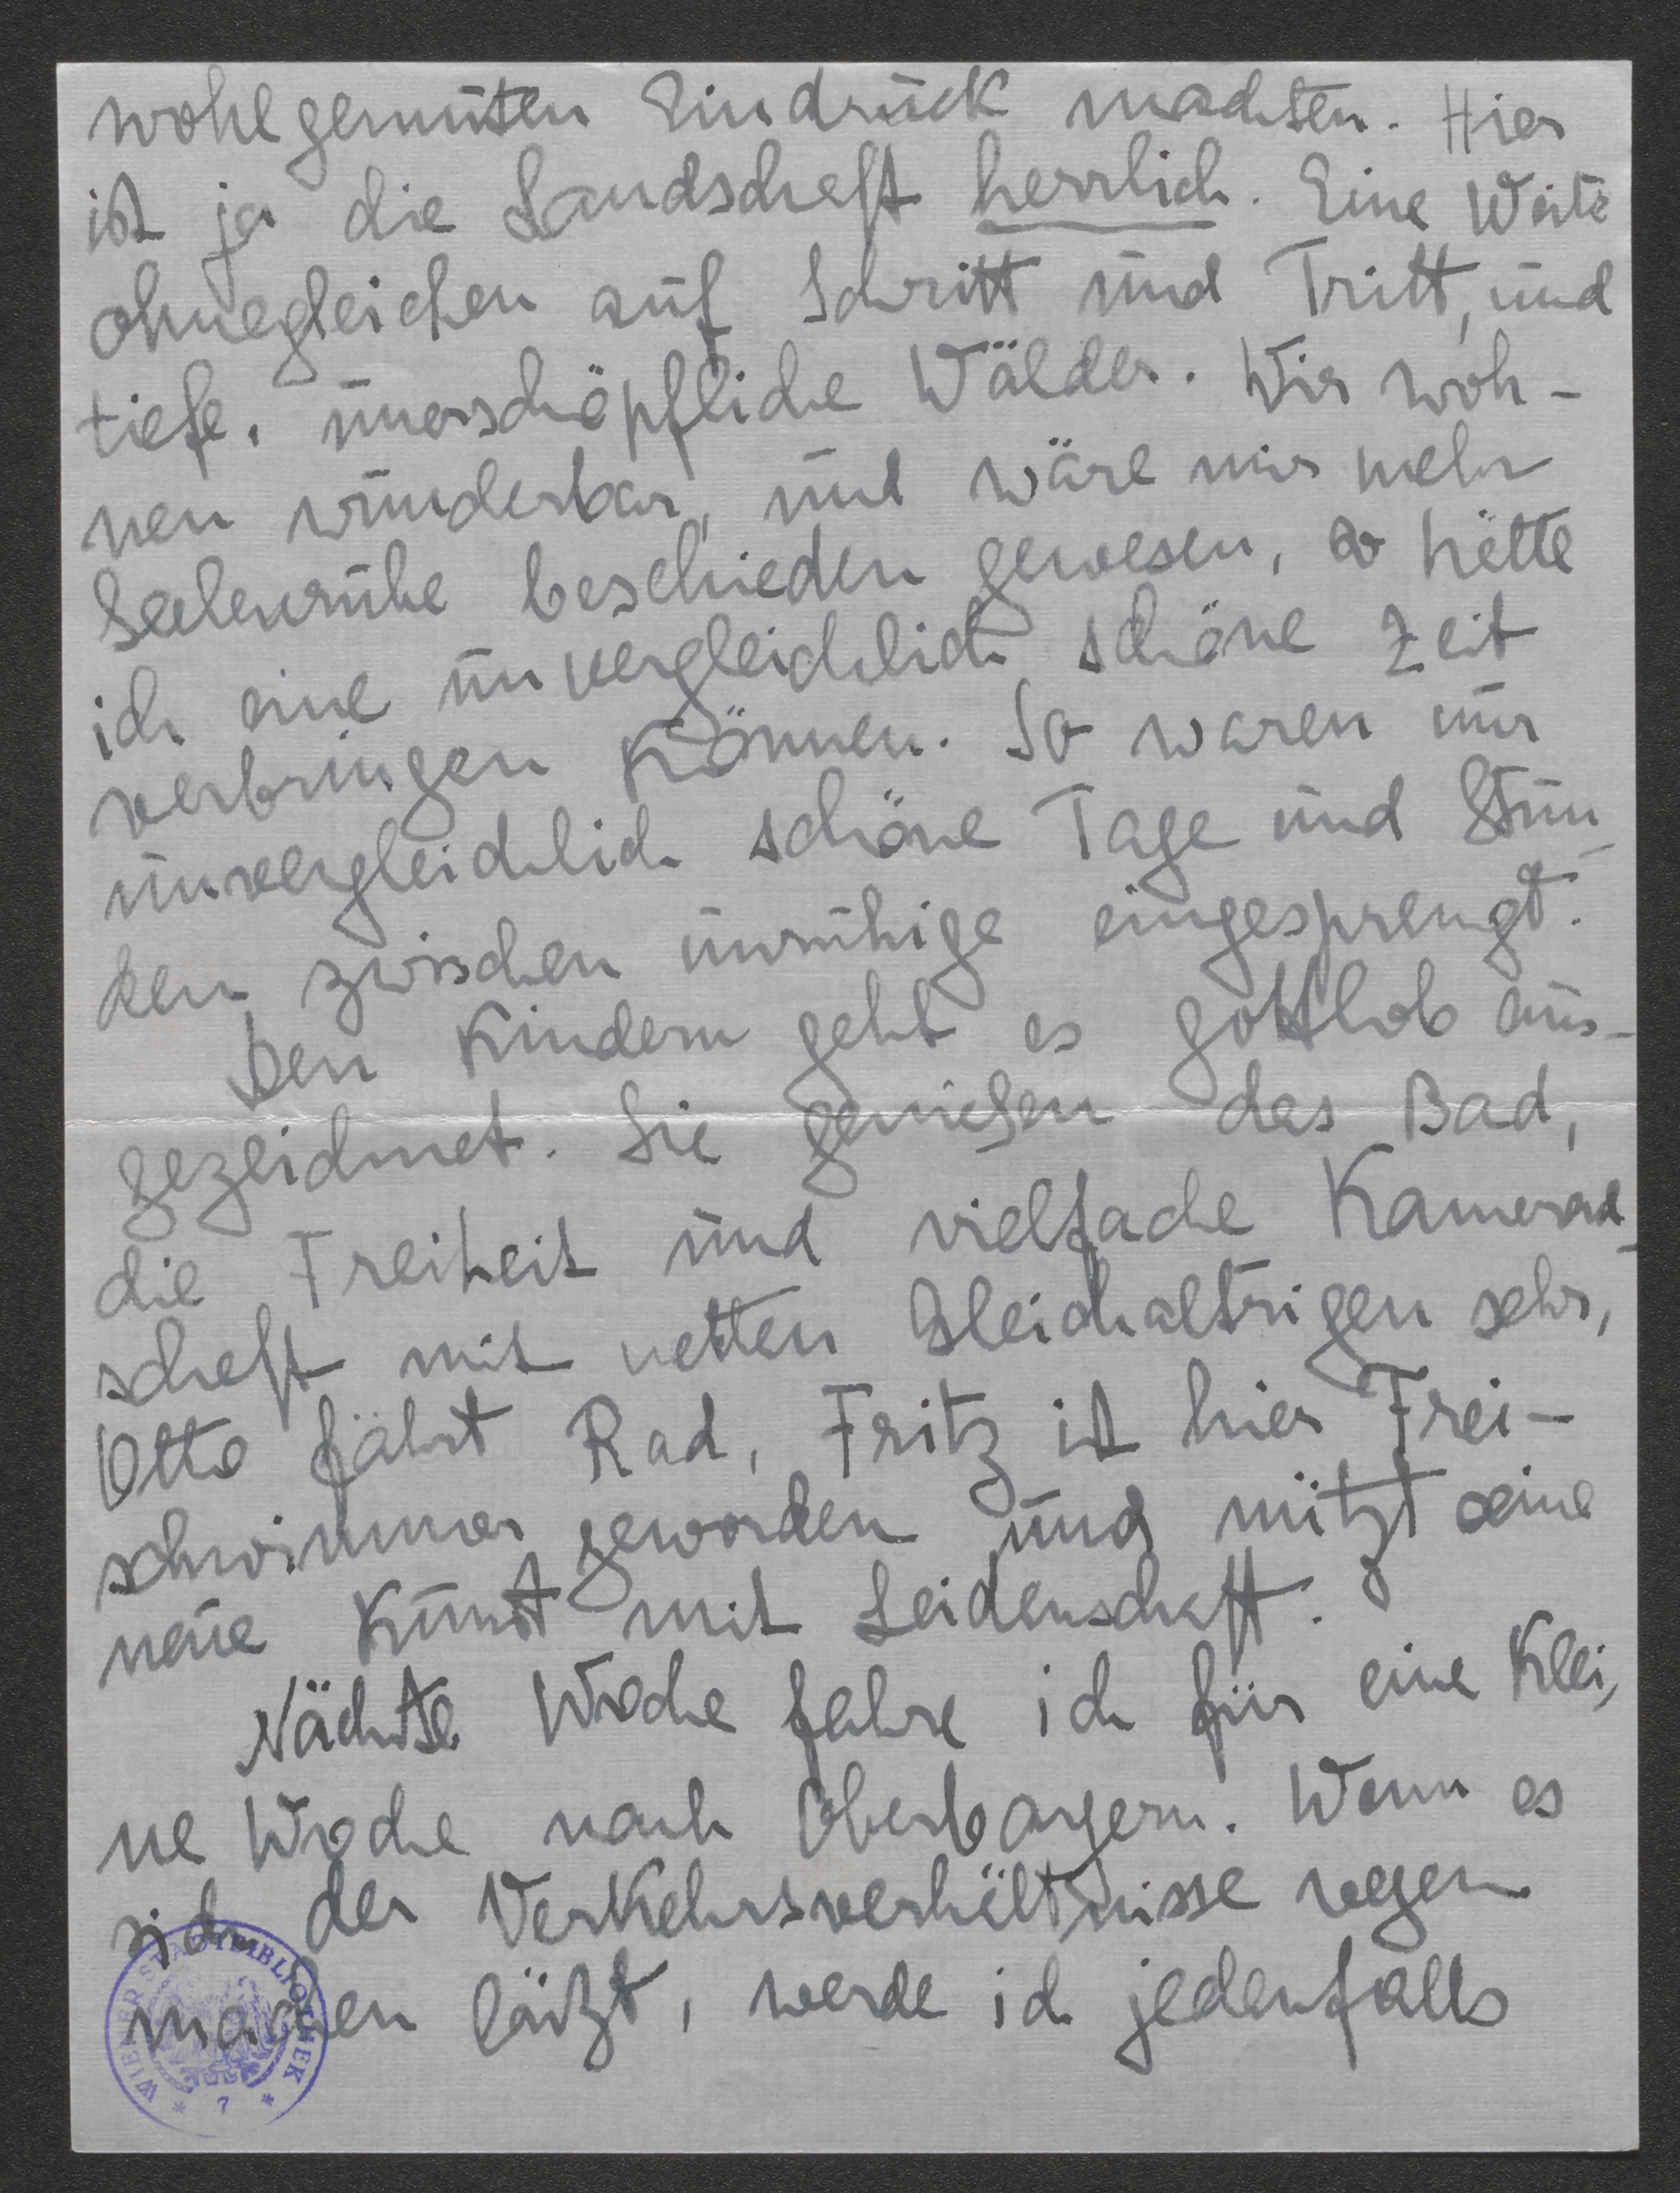 wohlgemuten Eindruck machten. Hier
ist ja die Landschaft herrlich. Eine Weite
ohnegleichen auf Schritt und Tritt, und
tiefe, unerschöpfliche Wälder. Wir woh-
nen wunderbar, und wäre mir mehr
Seelenruhe beschieden gewesen, so hätte
ich eine unvergleichlich schöne Zeit
verbringen können. So waren nur
unvergleichlich schöne Tage und Stun-
den zwischen unruhige eingesprengt.
Den Kindern geht es gottlob aus-
gezeichnet. Sie genießen das Bad,
die Freiheit und vielfache Kamerad-
schaft mit netten Gleichaltrigen sehr,
Otto fährt Rad, Fritz ist hier Frei-
schwimmer geworden und nützt seine
neue Kunst mit Leidenschaft.
Nächste Woche fahre ich für eine klei-
ne Woche nach Oberbayern. Wenn es
sich der Verkehrsverhältnisse wegen
machen läßt, werde ich jedenfalls
WIENER STADTBIBLIOTHEK
* 7 *